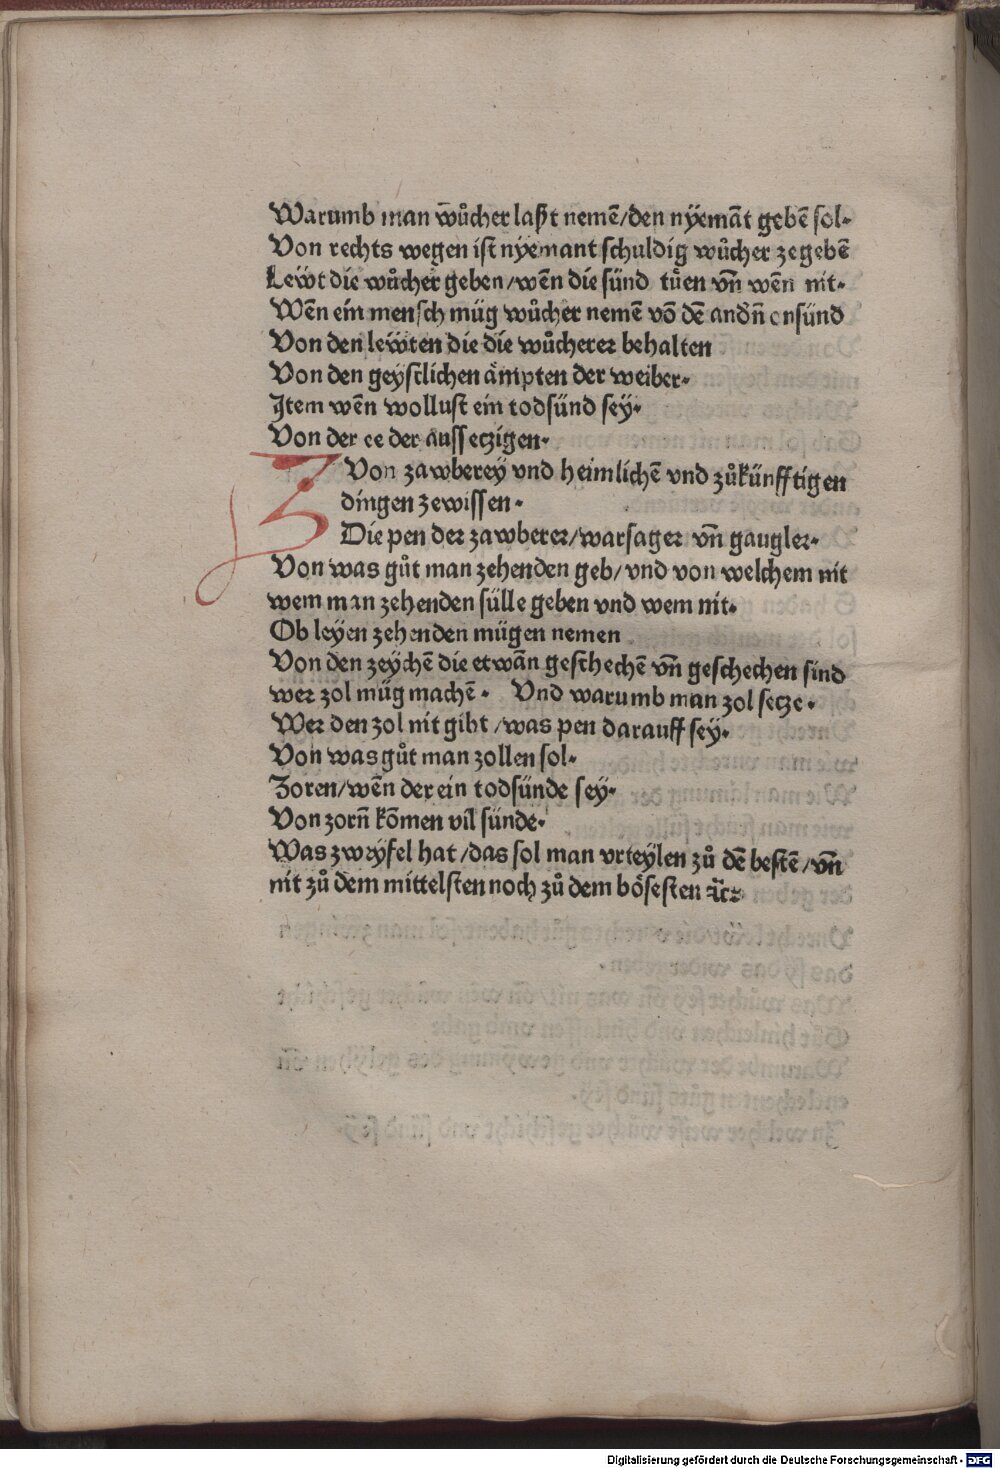 Warumb man wůcher laßt nemē/den nyemāt gebē sol.
Von rechts wegen ist nyemant schuldig wůcher zegebē
Lewt die wůcher geben/wēn die sünd tůen vñ wēn nit.
Wēn ein mensch müg wůcher nemē võ dē andñ onsünd
Von den lewten die die wůcherer behalten
Von den geystlichen ämpten der weiber.
Item wēn wollust ein todsünd sey.
Von der ee der aussetzigen.
Z Von zawberey vnd heimlichē vnd zůkünfftigen
dingen zewissen.
Die pen der zawberer/warsager vñ gaugler.
Von was gůt man zehenden geb/vnd von welchem nit
wem man zehenden sülle geben vnd wem nit.
Ob leyen zehenden mügen nemen
Von den zeychē die etwān geschechē vñ geschechen sind
wer zol müg machē. Vnd warumb man zol setze.
Wer den zol nit gibt/was pen darauff sey.
Von was gůt man zollen sol.
Zoren/wēn der ein todsünde sey.
Von zorñ kōmen vil sünde.
Was zweyfel hat/das sol man vrteylen zů dē bestē/vñ
nit zů dem mittelsten noch zů dem bösesten ꝛc̄.
Digitalisierung gefördert durch die Deutsche Forschungsgemeinschaft - DFG